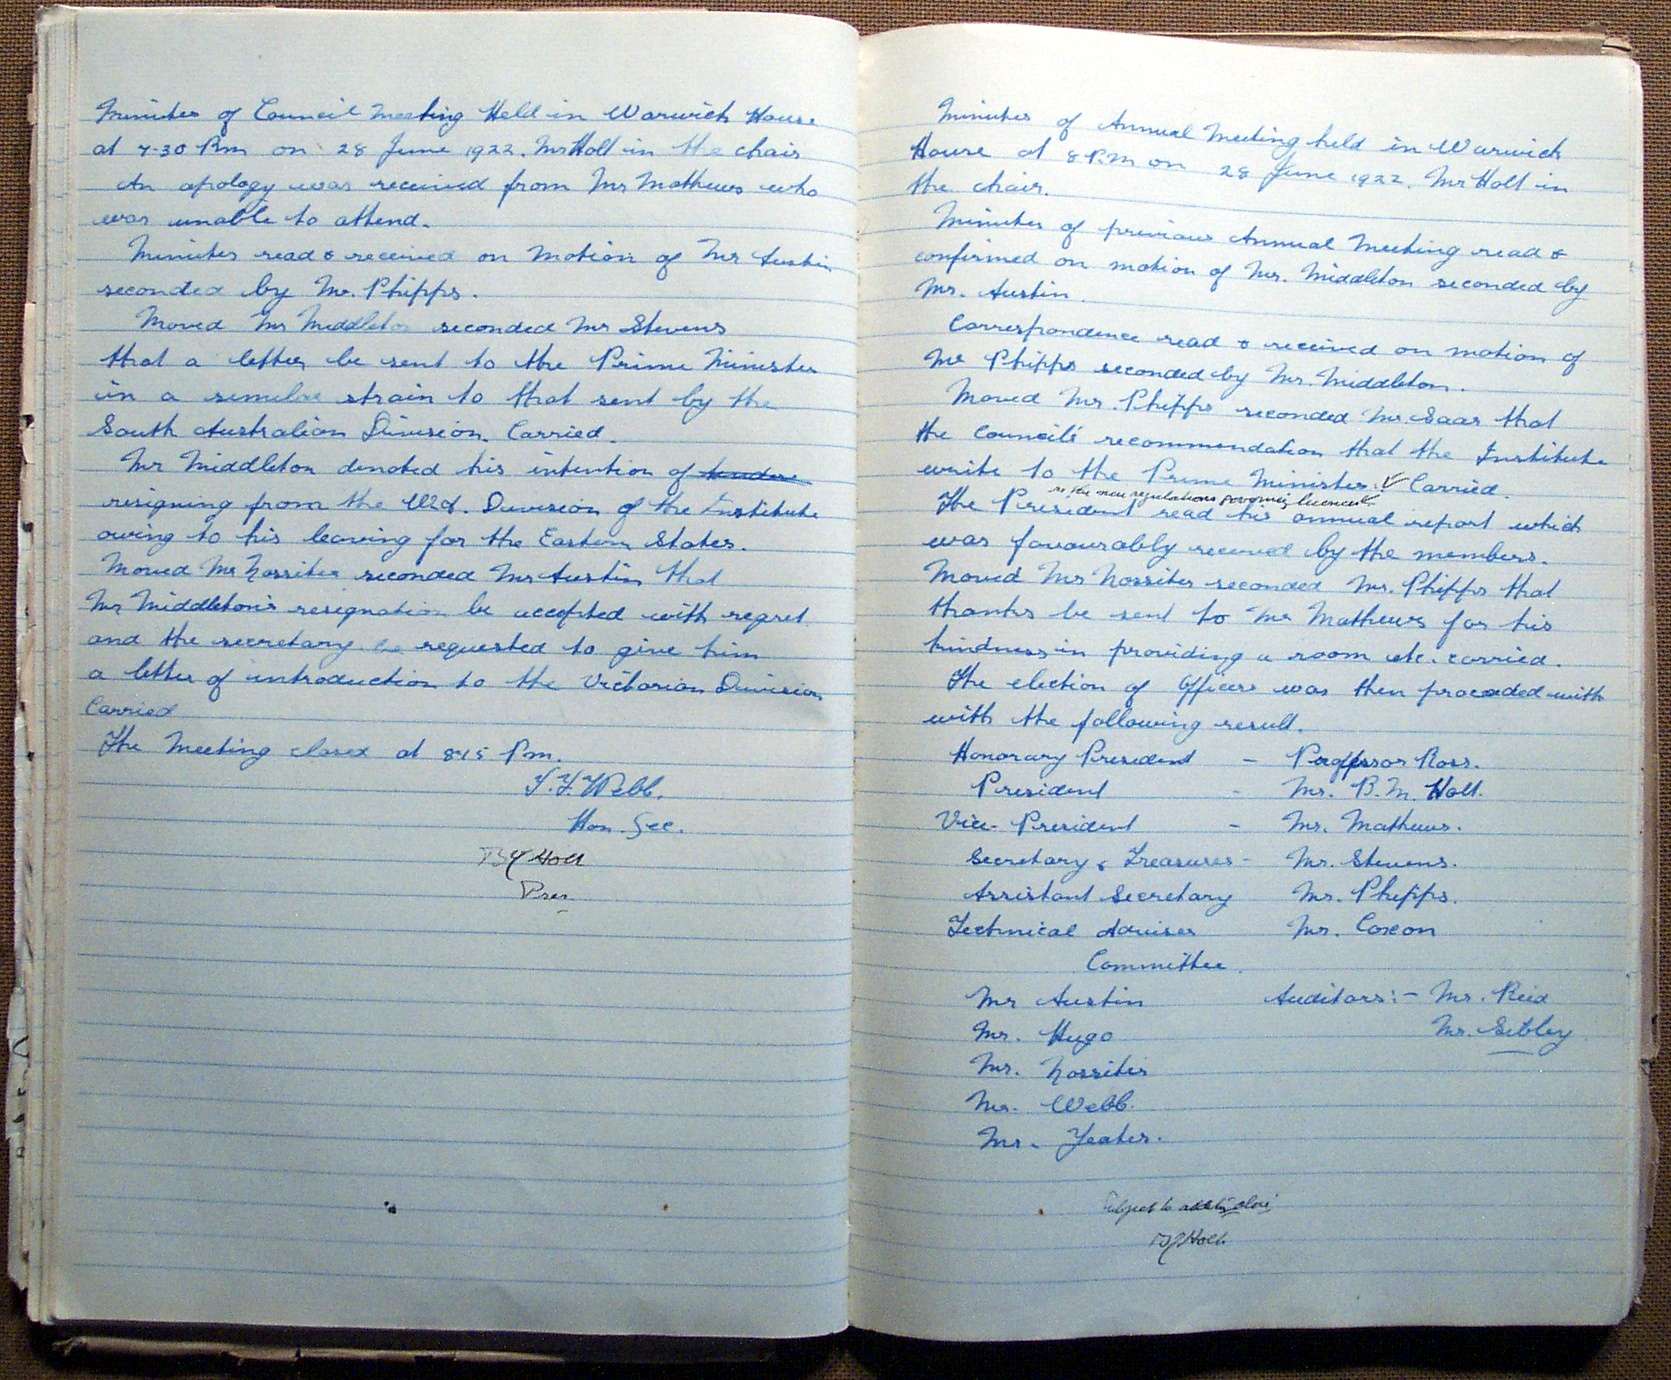 Minutes of Council Meeting Held in Warwick House
at 7-30 P.m on 28 June 1922. Mr Holt in the chair
An apology was received from Mr Mathews who
was unable to attend.
Minutes read & received on motion of Mr Austin
seconded by Mr. Phipps.
Moved Mr Middleton seconded Mr Stevens
that a letter be sent to the Prime Minister
in a similar strain to that sent by the
South Australian Division. Carried.
Mr Middleton denoted his intention of
resigning from the W.A. Division of the Institute
owing to his leaving for the Eastern States.
Moved Mr Rossiter seconded Mr Austin that
Mr Middleton's resignation be accepted with regret
and the secretary be requested to give him
a letter of introduction to the Victorian Division
Carried
The Meeting closed at 8.15 P.m.
Webb.
Hon. Sec.
Holt
Pres
Minutes of Annual Meeting held in Warwick
House at 8 P.m on 28 June 1922. Mr Holt in
the chair.
Minutes of previous Annual Meeting read &
confirmed on motion of Mr. Middleton seconded by
Mr. Austin.
Correspondence read & received on motion of
Mr Phipps seconded by Mr. Middleton.
Moved Mr. Phipps seconded Mr. Saar that
the Council's recommendation that the Institute
write to the Prime Minister. Carried.
re the new regulations governing licences
The President read his annual report which
was favourably received by the members.
Moved Mr Rossiter seconded Mr. Phipps that
thanks be sent to Mr Mathews for his
kindness in providing a room etc. carried.
The election of Officers was then proceeded with
with the following result.
Honorary President - Professor Ross.
President - Mr. B. M. Holt.
Vice-President - Mr. Mathews.
Secretary & Treasurer - Mr. Stevens.
Assistant Secretary Mr. Phipps.
Technical Adviser Mr. Coxon
Committee.
Mr Austin Auditors:- Mr. Reid
Mr. Hugo Mr. Sibley
Mr. Rossiter
Mr. Webb.
Mr. Yeates.
Subject to above
Holt